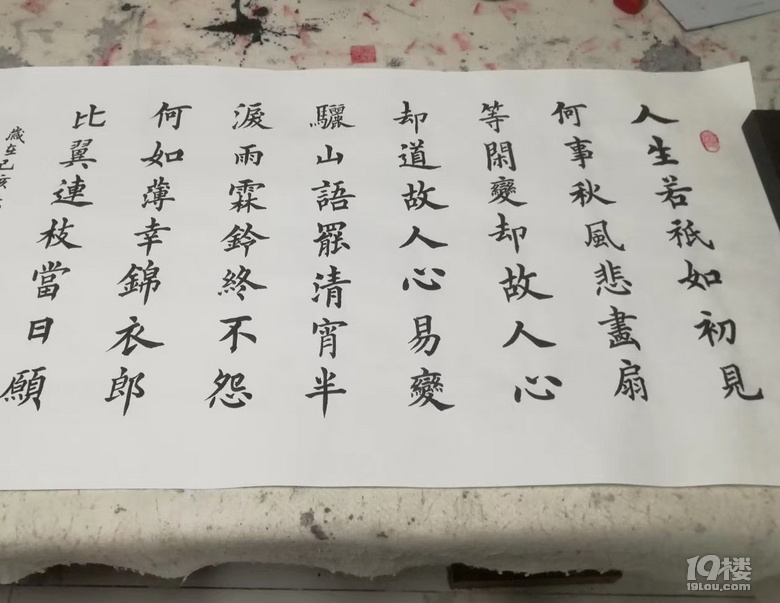 人生若祇如初見
何事秋風悲畫扇
等閑變却故人心
却道故人心易變
驪山語罷清宵半
淚雨霖鈴終不怨
何如薄幸錦衣郎
比翼連枝當日願
歲在己亥
19楼
19lou.com